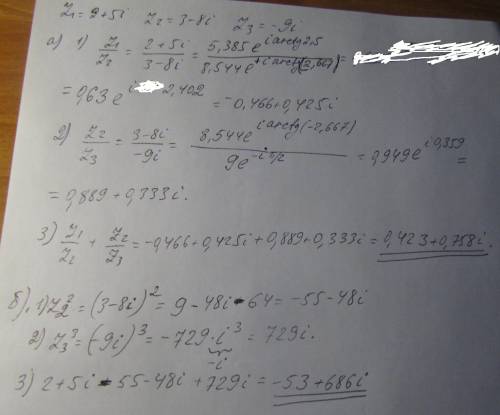 z₁ = 2+5i  z₂ = 3-8i  z₃ = -9i
а) 1) z₁/z₂ = (2+5i)/(3-8i) = (5,385 e^(i arctg 2,5))/(8,544 e^(i arctg(-2,667))) =
= 0,63 e^(i 2,402) = -0,466+0,425i
2) z₂/z₃ = (3-8i)/(-9i) = (8,544 e^(i arctg(-2,667)))/(9e^(-i π/2)) = 0,949 e^(i 0,359) =
= 0,889 + 0,333i.
3) z₁/z₂ + z₂/z₃ = -0,466+0,425i+0,889+0,333i = 0,423+0,758i.
б). 1) z₂² = (3-8i)² = 9 - 48i - 64 = -55-48i
2) z₃³ = (-9i)³ = -729·i³ = 729i.
-i
3) 2+5i - 55-48i + 729i = -53+686i